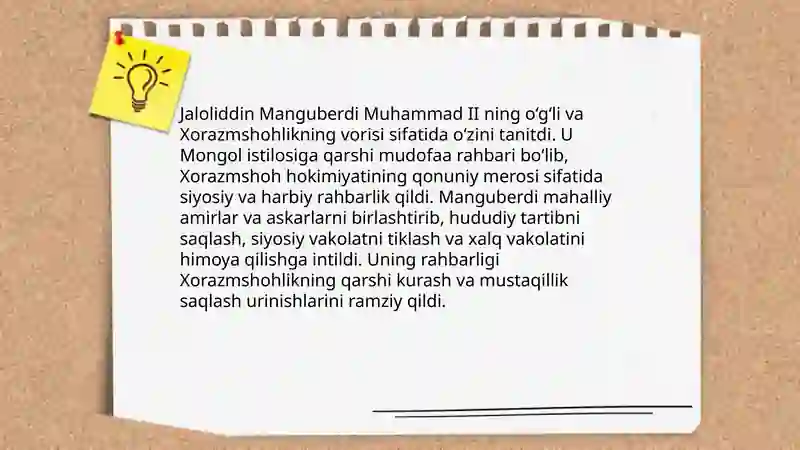 Jaloliddin Manguberdi Muhammad II ning oʻgʻli va
Xorazmshohlikning vorisi sifatida oʻzini tanitdi. U
Mongol istilosiga qarshi mudofaa rahbari boʻlib,
Xorazmshoh hokimiyatining qonuniy merosi sifatida
siyosiy va harbiy rahbarlik qildi. Manguberdi mahalliy
amirlar va askarlarni birlashtirib, hududiy tartibni
saqlash, siyosiy vakolatni tiklash va xalq vakolatini
himoya qilishga intildi. Uning rahbarligi
Xorazmshohlikning qarshi kurash va mustaqillik
saqlash urinishlarini ramziy qildi.